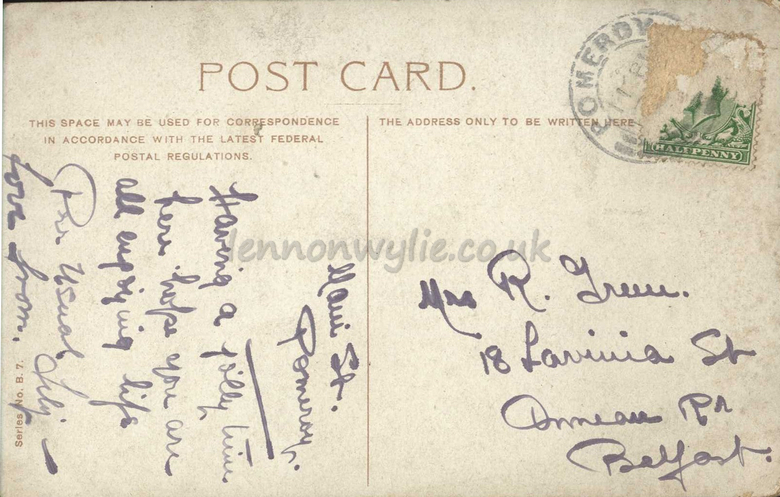 POST CARD.
THIS SPACE MAY BE USED FOR CORRESPONDENCE
IN ACCORDANCE WITH THE LATEST FEDERAL
POSTAL REGULATIONS.
THE ADDRESS ONLY TO BE WRITTEN HERE
POMEROY
HALFPENNY
Main St.
Pomeroy.
Having a jolly time
here hope you are
all enjoying life
The Usual
love from.
Mrs R. Green.
18 Lavinia St
Ormeau Rd
Belfast.
Series No. B. 7.
lennonwylie.co.uk